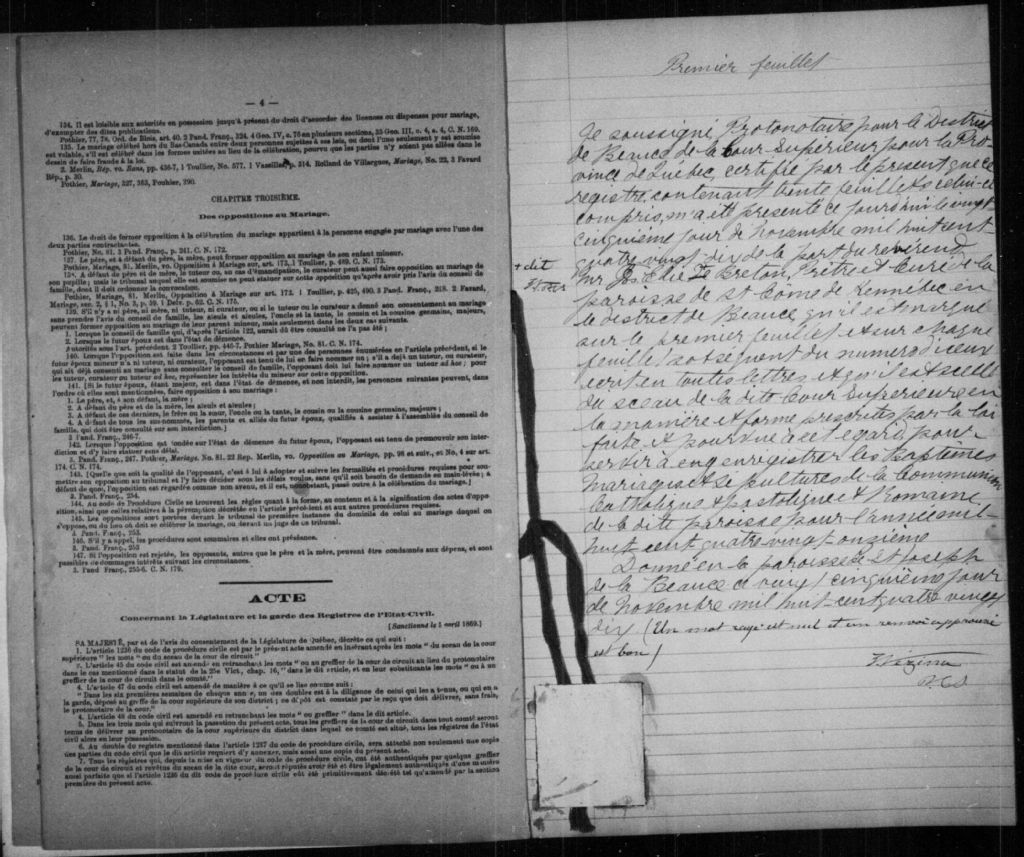 — 4 —
134. Il est loisible aux autorités en possession jusqu'à présent du droit d'accorder des licences ou dispenses pour mariage,
d'exempter des dites publications.
Pothier, 77, 78. Ord. de Blois, art. 40. 2 Pand. Franç., 324. 4 Geo. IV, c. 75 en plusieurs sections, 35 Geo. III, c. 4, s. 4, C. N. 169.
135. Le mariage célébré hors du Bas-Canada entre deux personnes sujettes à ses lois, ou dont l'une seulement y est soumise
est valable, s'il est célébré dans les formes usitées au lieu de la célébration, pourvu que les parties n'y soient pas allées dans le
dessein de faire fraude à la loi.
2. Merlin, Rép. vo. Bans, pp. 436-7, 1 Toullier, No. 577. 1 Vassilles, p. 314. Rolland de Villargues, Mariage, No. 22, 3 Favard
Rép., p. 30.
Pothier, Mariage, 327, 363, Pouhier, 390.
CHAPITRE TROISIÈME.
Des oppositions au Mariage.
136. Le droit de former opposition à la célébration du mariage appartient à la personne engagée par mariage avec l'une des
deux parties contractantes.
Pothier, No. 81. 3 Pand. Franç., p. 241. C. N. 172.
137. Le père, et à défaut du père, la mère, peut former opposition au mariage de son enfant mineur.
Pothier, Mariage, 81. Merlin, vo. Opposition à Mariage sur art. 173, 1 Toullier, p. 489, C. N. 173.
138. A défaut du père et de mère, le tuteur ou, au cas d'émancipation, le curateur peut aussi faire opposition au mariage de
son pupille; mais le tribunal auquel elle est soumise ne peut statuer sur cette opposition qu'après avoir pris l'avis du conseil de
famille, dont il doit ordonner la convocation.
Pothier, Mariage, 81. Merlin, Opposition à Mariage sur art. 172. 1 Toullier, p. 425, 490. 3 Pand. Franç., 218. 2 Favard,
Mariage, sec. 2, § 1, No. 3, p. 59. 1 Delv. p. 62. C. N. 175.
139. S'il n'y a ni père, ni mère, ni tuteur, ni curateur, ou si le tuteur ou le curateur a donné son consentement au mariage
sans prendre l'avis du conseil de famille, les aïeuls et aïeules, l'oncle et la tante, le cousin et la cousine germains, majeurs,
peuvent former opposition au mariage de leur parent mineur, mais seulement dans les deux cas suivants.
1. Lorsque le conseil de famille qui, d'après l'article 122, aurait dû être consulté ne l'a pas été;
2. Lorsque le futur époux est dans l'état de démence.
Autorités sous l'art. précédent 2 Toullier, pp. 446-7. Pothier Mariage, No. 81. C. N. 174.
140. Lorsque l'opposition est faite dans les circonstances et par une des personnes énumérées en l'article précédent, si le
futur époux mineur n'a ni tuteur, ni curateur, l'opposant est tenu de lui en faire nommer un; s'il a déjà un tuteur, ou curateur,
qui ait déjà consenti au mariage sans consulter le conseil de famille, l'opposant doit lui faire nommer un tuteur ad hoc; pour
les tuteur, curateur ou tuteur ad hoc, représenter les intérêts du mineur sur cette opposition.
141. [Si le futur époux, étant majeur, est dans l'état de démence, et non interdit, les personnes suivantes peuvent, dans
l'ordre où elles sont mentionnées, faire opposition à son mariage:
1. Le père, et, à son défaut, la mère;
2. A défaut du père et de la mère, les aïeuls et aïeules;
3. A défaut de ces derniers, le frère ou la sœur, l'oncle ou la tante, le cousin ou la cousine germains, majeurs;
4. A défaut de tous les sus-nommés, les parents et alliés du futur époux, qualifiés à assister à l'assemblée du conseil de
famille, qui doit être consulté sur son interdiction.]
3 Pand. Franç., 246-7.
142. Lorsque l'opposition est fondée sur l'état de démence du futur époux, l'opposant est tenu de promouvoir son inter-
diction et d'y faire statuer sans délai.
3. Pand. Franç., 247. Pothier, Mariage, No. 81. 22 Rep. Merlin, vo. Opposition au Mariage, pp. 98 et suiv., et No. 4 sur art.
174. C. N. 174.
143. [Quelle que soit la qualité de l'opposant, c'est à lui à adopter et suivre les formalités et procédures requises pour sou-
mettre son opposition au tribunal et l'y faire décider sous les délais voulus, sans qu'il soit besoin de demande en main-levée; à
défaut de quoi, l'opposition est regardée comme non avenu, et il est, nonobstant, passé outre à la célébration du mariage.]
3. Pand. Franç., 254.
144. Au code de Procédure Civile se trouvent les règles quant à la forme, au contenu et à la signification des actes d'oppo-
sition, ainsi que celles relatives à la péremption décrétée en l'article précédent et aux autres procédures requises.
145. Les oppositions sont portées devant le tribunal de première instance du domicile de celui au mariage duquel on
s'oppose, ou du lieu où doit se célébrer le mariage, ou devant un juge de ce tribunal.
3. Pand. Franç., 253.
146. S'il y a appel, les procédures sont sommaires et elles ont préséance.
3. Pand. Franç., 253
147. Si l'opposition est rejetée, les opposants, autres que le père et la mère, peuvent être condamnés aux dépens, et sont
passibles de dommages intérêts suivant les circonstances.
3. Pand Franç., 255-6. C. N. 179.
ACTE
Concernant la Législature et la garde des Registres de l'Etat-Civil.
[Sanctionné le 5 avril 1869.]
SA MAJESTÉ, par et de l'avis du consentement de la Législature de Québec, décrète ce qui suit:
1. L'article 1236 du code de procédure civile est par le présent acte amendé en insérant après les mots "du sceau de la cour
supérieure" les mots "ou du sceau de la cour de circuit."
2. L'article 45 du code civil est amendé en retranchant les mots "ou au greffier de la cour de circuit au lieu du protonotaire
dans le cas mentionné dans le statut de la 25e Vict, chap. 16," dans le dit article, et en leur substituants les mots "ou à un
greffier de la cour de circuit dans le comté."
4. L'article 47 du code civil est amendé de manière à ce qu'il se lise comme suit:
"Dans les six premières semaines de chaque année, un des doubles est à la diligence de celui qui les a tenus, ou qui en a
la garde, déposé au greffe de la cour supérieure de son district; ce dépôt est constaté par le reçu que doit délivrer, sans frais,
le protonotaire de la cour."
4. L'article 48 du code civil est amendé en retranchant les mots "ou greffier" dans le dit article.
5. Dans les trois mois qui suivront la passation du présent acte, tous les greffiers de la cour de circuit dans tout comté seront
tenus de délivrer au protonotaire de la cour supérieure du district dans lequel ce comté est situé, tous les régistres de l'état
civil alors en leur possession.
6. Au double du registre mentionné dans l'article 1237 du code de procédure civile, sera attaché non seulement une copie
des parties du code civil que le dit article requiert d'y annexer, mais aussi une copie du présent acte.
7. Tous les régistres qui, depuis la mise en vigueur du code de procédure civile, ont été authentiqués par quelque greffier
de la cour de circuit et revêtus du sceau de la dite cour, seront réputés avoir été et être légalement authentiqués d'une manière
aussi parfaite que si l'article 1236 du dit code de procédure civile eût été primitivement décrété tel qu'amendé par la section
première du présent acte.
Premier feuillet
Je soussigné, Protonotaire pour le District
de Beauce de la Cour Supérieur pour la Pro-
vince de Québec, certifie par le présent que ce
registre, contenant trente feuillets celui-ci
compris, m'a été présenté ce jourd'hui le vingt
cinquième jour de novembre mil huit cent
quatre vingt dix de la part du révérend
+ dit
Mr Jos Elie Le Breton, Prêtre et Curé de la
paroisse de St Côme de Kennebec en
le district de Beauce, qu'il est marqué
sur le premier feuillet et sur chaque
feuillet subséquent du numéro d'iceux
écrit en toutes lettres, et qu'il est scellé
du sceau de la dite Cour Supérieure en
la manière et forme prescrites par la loi
faite et pourvue à cet égard, pour
servir à enregistrer les Baptêmes
Mariages et sépultures de la Communion
Catholique Apostolique & Romaine
de la dite paroisse pour l'année mil-
huit cent quatre vingt onzieme
Donné en la paroisse de St Joseph
de la Beauce ce vingt cinquième jour
de Novembre mil huit cent quatre vingt
dix (Un mot rayé est nul et un renvoi approuvé
est bon)
Vezina
P.C.S